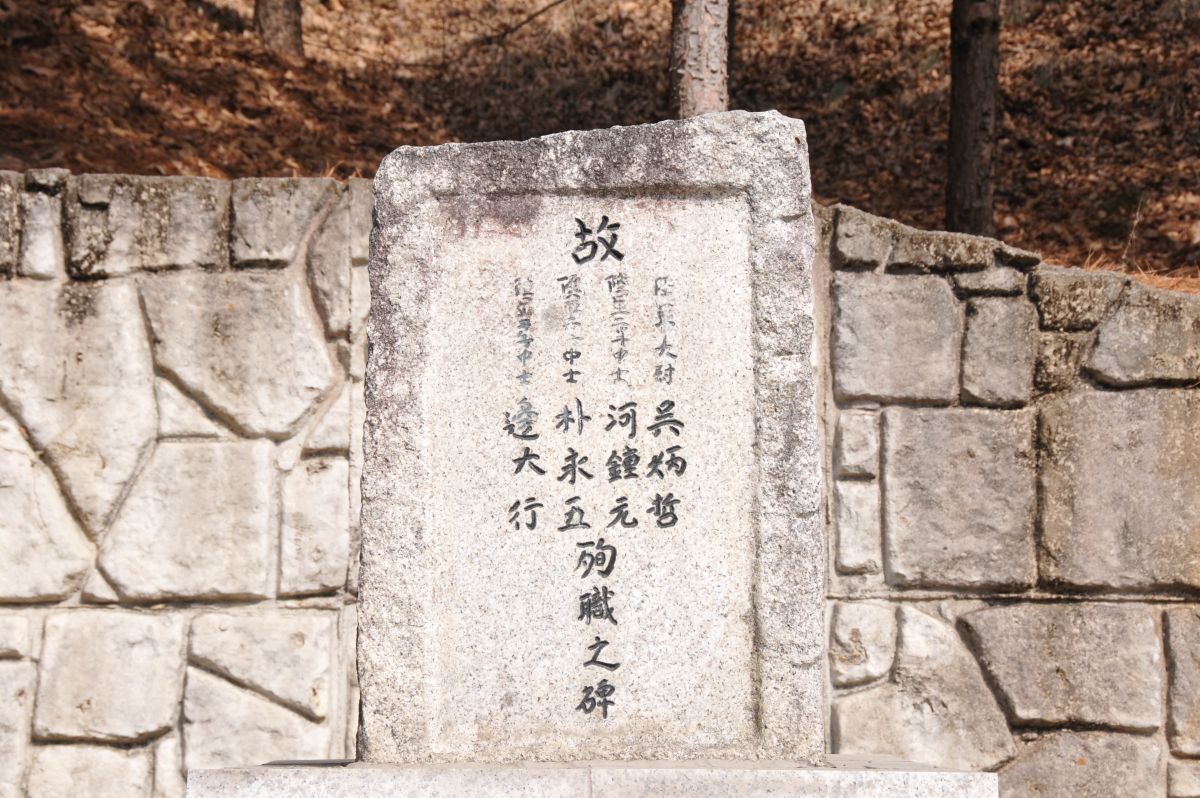 故
陸軍大尉 吳炳哲
陸軍二等中士 河鐘元
陸軍 中士 朴永五
中士 逢大行
殉職之碑